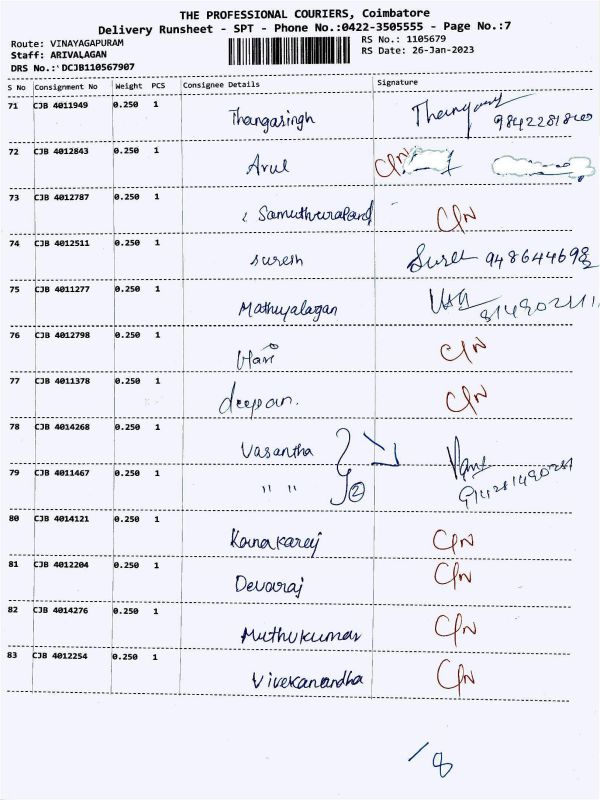 THE PROFESSIONAL COURIERS, Coimbatore
Delivery Runsheet - SPT - Phone No.:0422-3505555 - Page No.:7
Route: VINAYAGAPURAM
Staff: ARIVALAGAN
DRS No.: DCJB110567907
RS No.: 1105679
RS Date: 26-Jan-2023
S No Consignment No Weight PCS Consignee Details Signature
71 CJB 4011949 0.250 1 Thangasingh 9842281840
72 CJB 4012843 0.250 1 Arul C/N
73 CJB 4012787 0.250 1 C/N
74 CJB 4012511 0.250 1 Suresh
75 CJB 4011277 0.250 1 Mathiyalagan
76 CJB 4012798 0.250 1 Hari C/N
77 CJB 4011378 0.250 1 deepan. C/N
78 CJB 4014268 0.250 1 Vasantha
79 CJB 4011467 0.250 1 " " 2
80 CJB 4014121 0.250 1 Kanakaraj C/N
81 CJB 4012204 0.250 1 Devaraj C/N
82 CJB 4014276 0.250 1 Muthukumar C/N
83 CJB 4012254 0.250 1 Vivekanandha C/N
/8